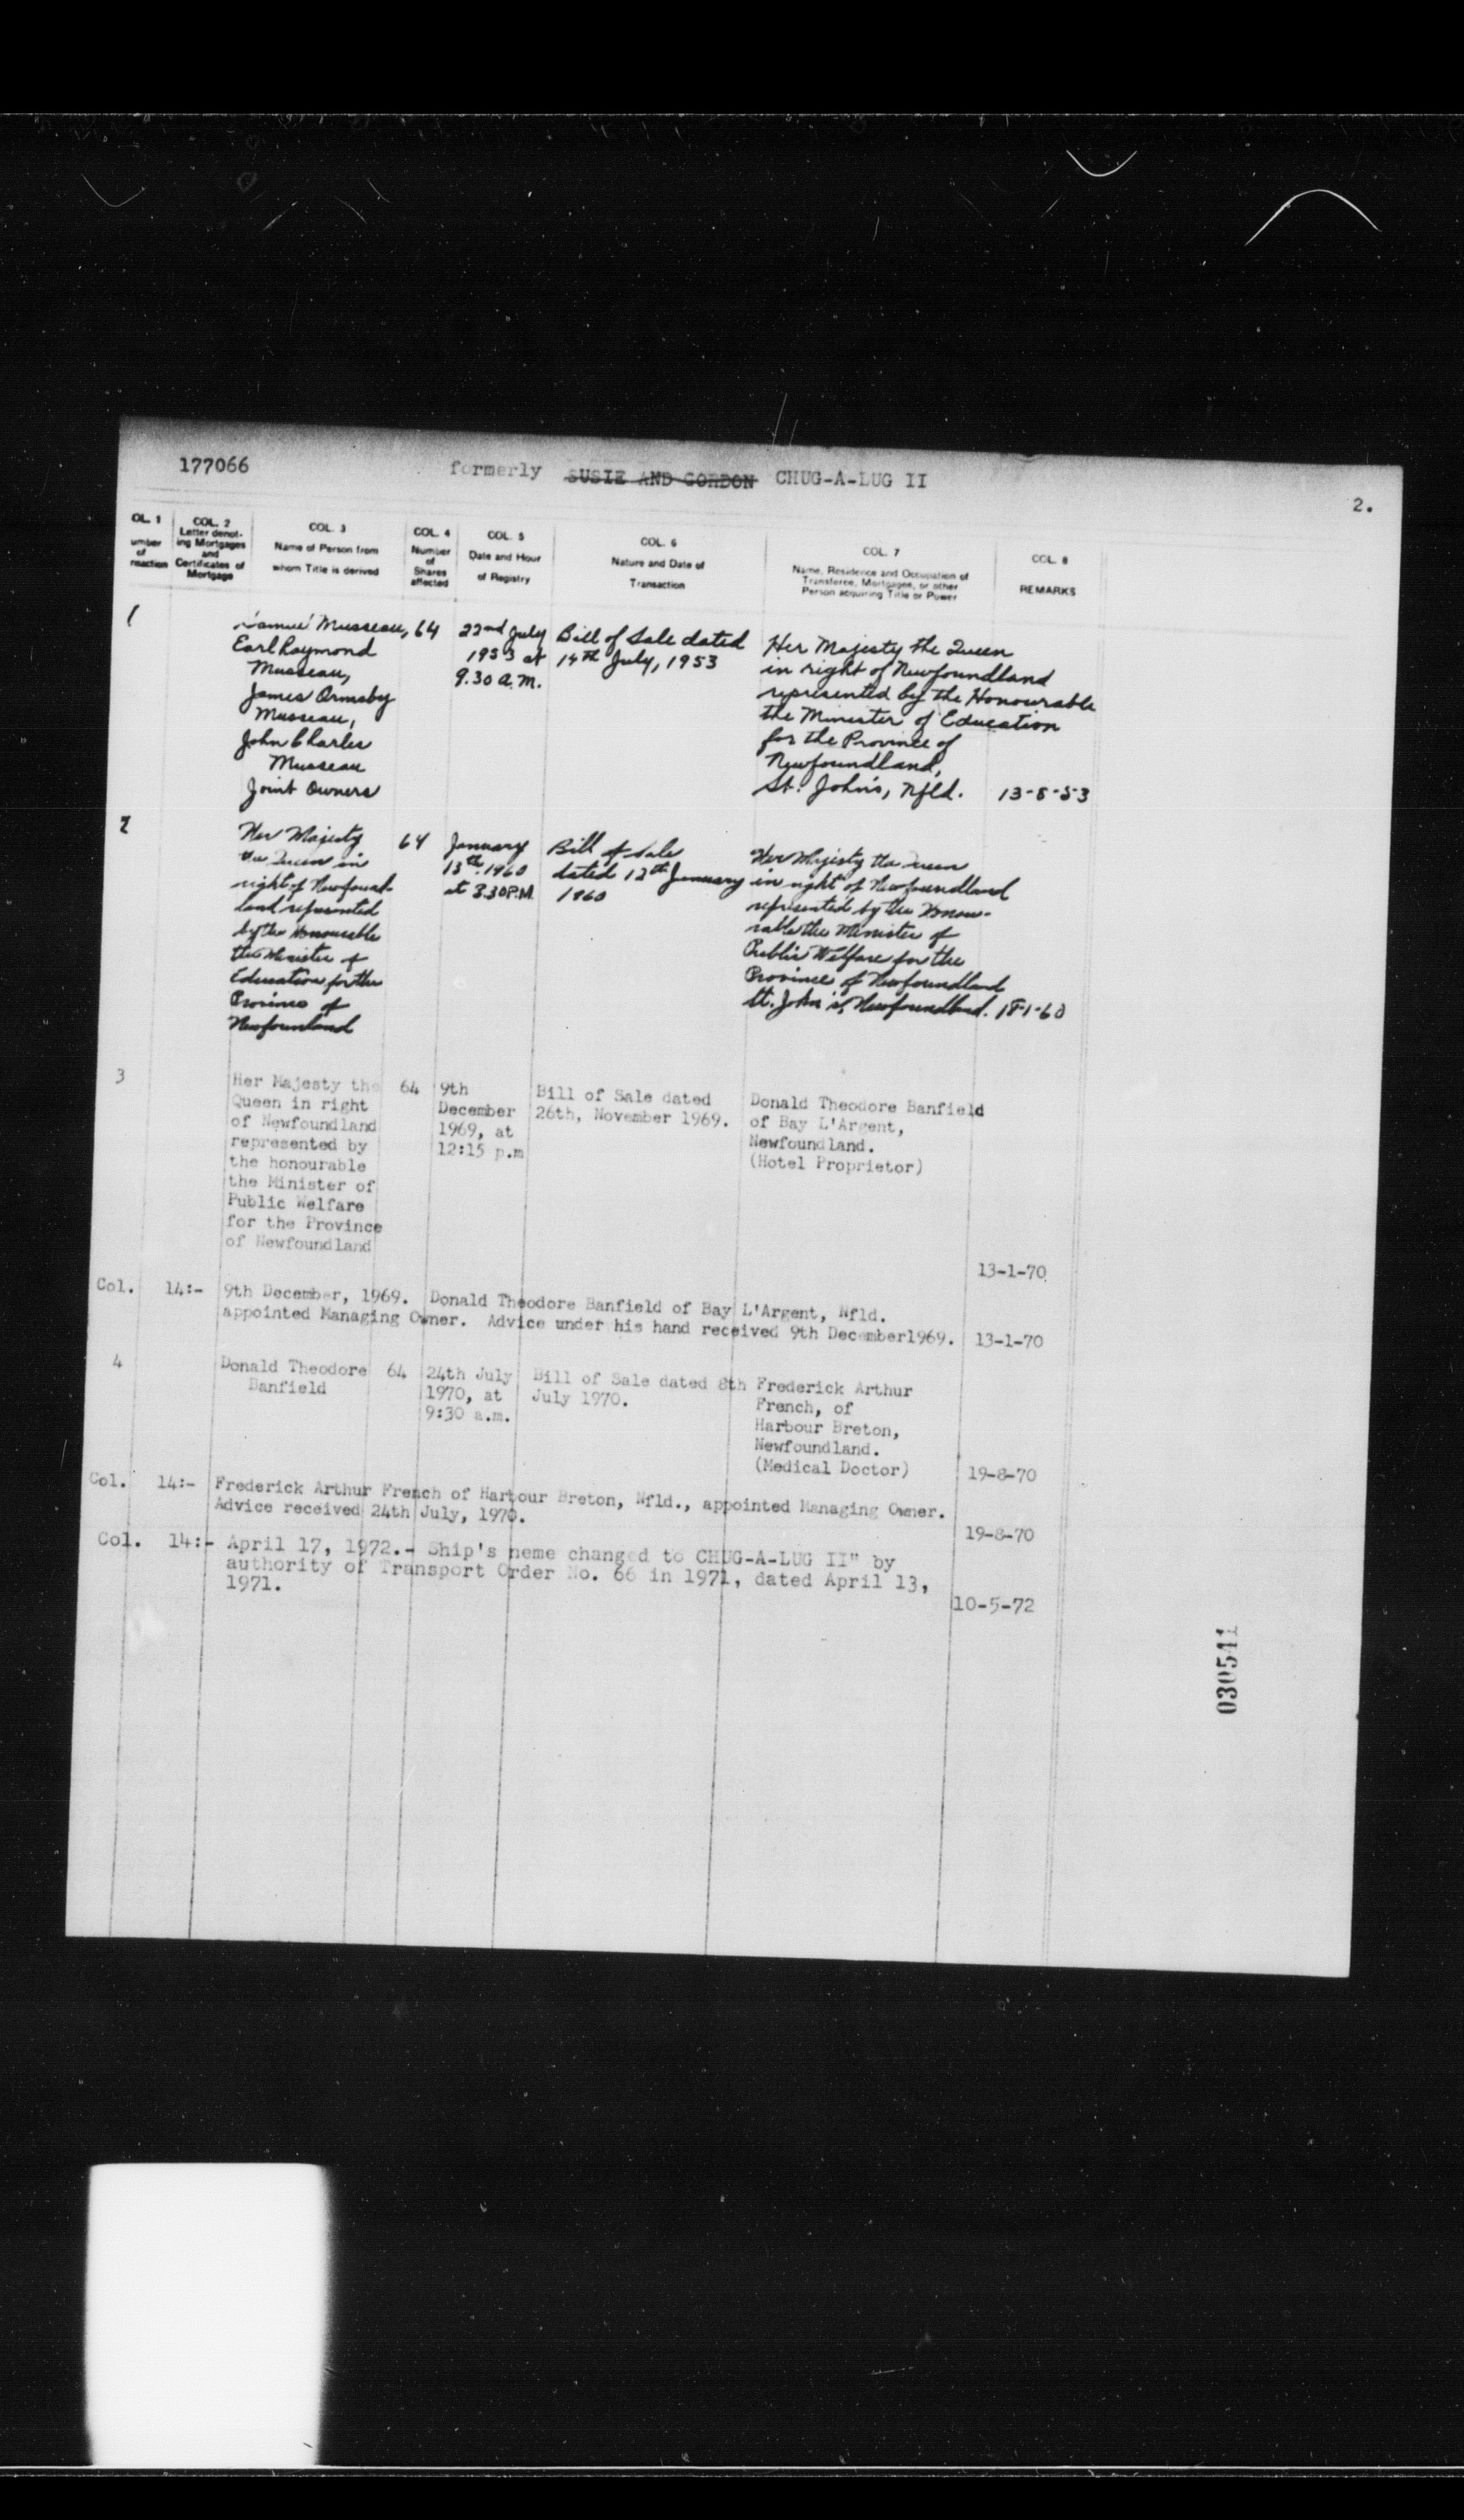 177066
formerly SUSIE AND GORDON CHUG-A-LUG II
2.
OL. 1
umber
of
nsaction
COL. 2
Letter denot-
ing Mortgages
and
Certificates of
Mortgage
COL. 3
Name of Person from
whom Title is derived
COL. 4
Number
of
Shares
affected
COL. 5
Date and Hour
of Registry
COL. 6
Nature and Date of
Transaction
COL. 7
Name, Residence and Occupation of
Transferee, Mortgagee, or other
Person acquiring Title or Power
COL. 8
REMARKS
1
Samuel Musseau,
Earl Raymond
Musseau,
James Ormsby
Musseau,
John Charles
Musseau
Joint Owners
64
22nd July
1953 at
9.30 A.M.
Bill of Sale dated
14th July, 1953
Her Majesty the Queen
in right of Newfoundland
represented by the Honourable
the Minister of Education
for the Province of
Newfoundland,
St. John's, Nfld.
13-8-53
2
Her Majesty
the Queen in
right of Newfound-
land represented
by the Honourable
the Minister of
Education for the
Province of
Newfounland
64
January
13th 1960
at 3.30 P.M.
Bill of Sale
dated 12th January
1960
Her Majesty the Queen
in right of Newfoundland
represented by the Honou-
rable the Minister of
Public Welfare for the
Province of Newfoundland
St. John's, Newfoundland.
18-1-60
3
Her Majesty the
Queen in right
of Newfoundland
represented by
the honourable
the Minister of
Public Welfare
for the Province
of Newfoundland
64
9th
December
1969, at
12:15 p.m
Bill of Sale dated
26th, November 1969.
Donald Theodore Banfield
of Bay L'Argent,
Newfoundland.
(Hotel Proprietor)
13-1-70
Col. 14:- 9th December, 1969. Donald Theodore Banfield of Bay L'Argent, Nfld.
appointed Managing Owner. Advice under his hand received 9th December1969. 13-1-70
4
Donald Theodore
Banfield
64
24th July
1970, at
9:30 a.m.
Bill of Sale dated 8th
July 1970.
Frederick Arthur
French, of
Harbour Breton,
Newfoundland.
(Medical Doctor)
19-8-70
Col. 14:- Frederick Arthur French of Harbour Breton, Nfld., appointed Managing Owner.
Advice received 24th July, 1970.
19-8-70
Col. 14:- April 17, 1972.- Ship's neme changed to CHUG-A-LUG II" by
authority of Transport Order No. 66 in 1971, dated April 13,
1971.
10-5-72
030541